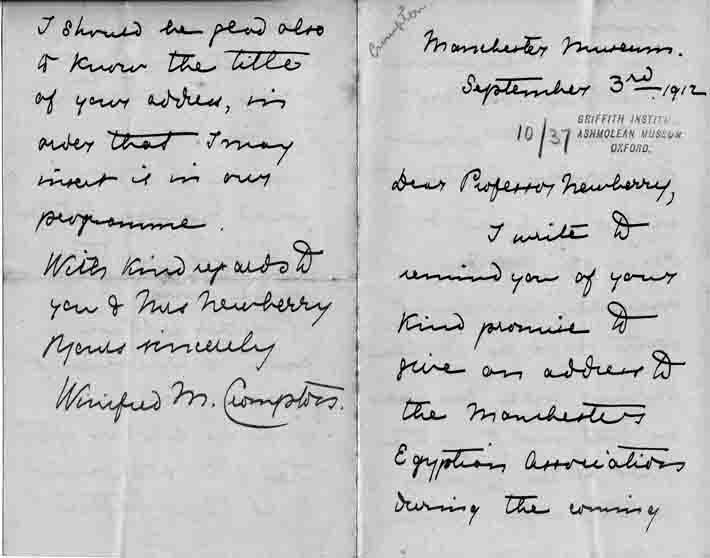 Crompton
Manchester Museum.
September 3rd 1912
10/37
GRIFFITH INSTITU
ASHMOLEAN MUSEUM
OXFORD.
Dear Professor Newberry,
I write to
remind you of your
kind promise to
give an address to
the Manchester
Egyptian Association
during the coming
I should be glad also
to know the title
of your address, in
order that I may
insert it in our
programme.
With kind regards to
you & Mrs Newberry
Yours sincerely
Winifred M. Crompton.